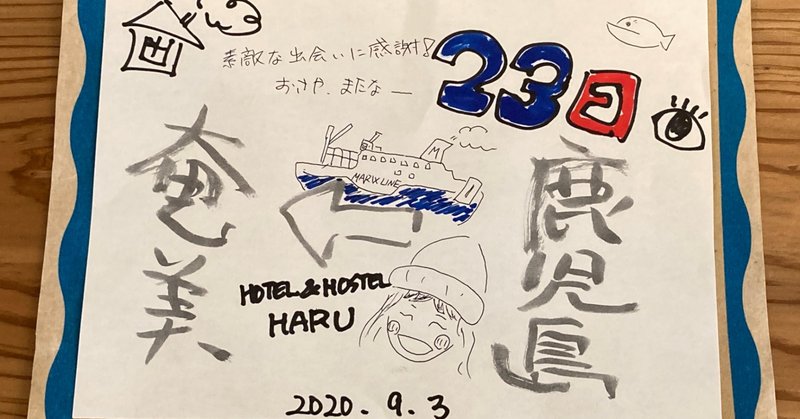 素敵な出会いに感謝!
またなー
23日
鹿児島
M
MARIX LINE
奄美
HOTEL & HOSTEL
HARU
2020. 9. 3